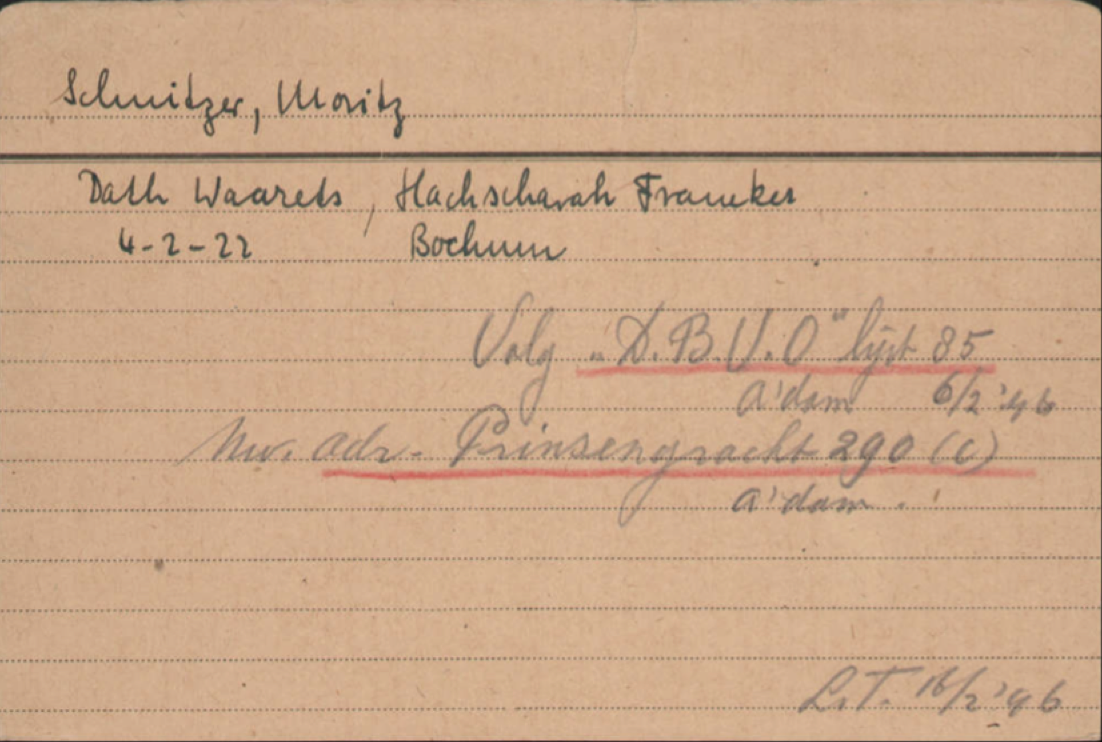 Schnitzer, Moritz
Dath Waarets, Hachscharah Franeker
4-2-22 Bochum
Volg „D.B.V.O" lijst 85
A'dam 6/2 '46
Nw. adr. Prinsengracht 290 (c)
A'dam.
L.T. 16/2 '46